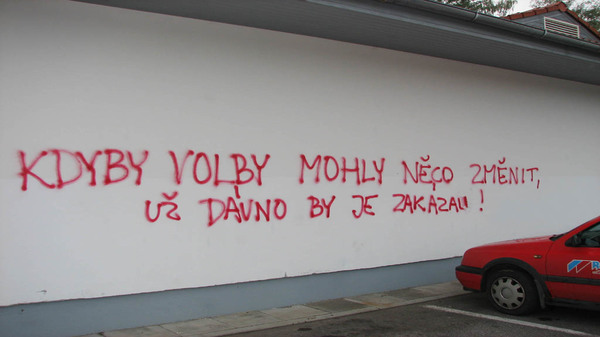 KDYBY VOLBY MOHLY NĚCO ZMĚNIT,
UŽ DÁVNO BY JE ZAKÁZALI !